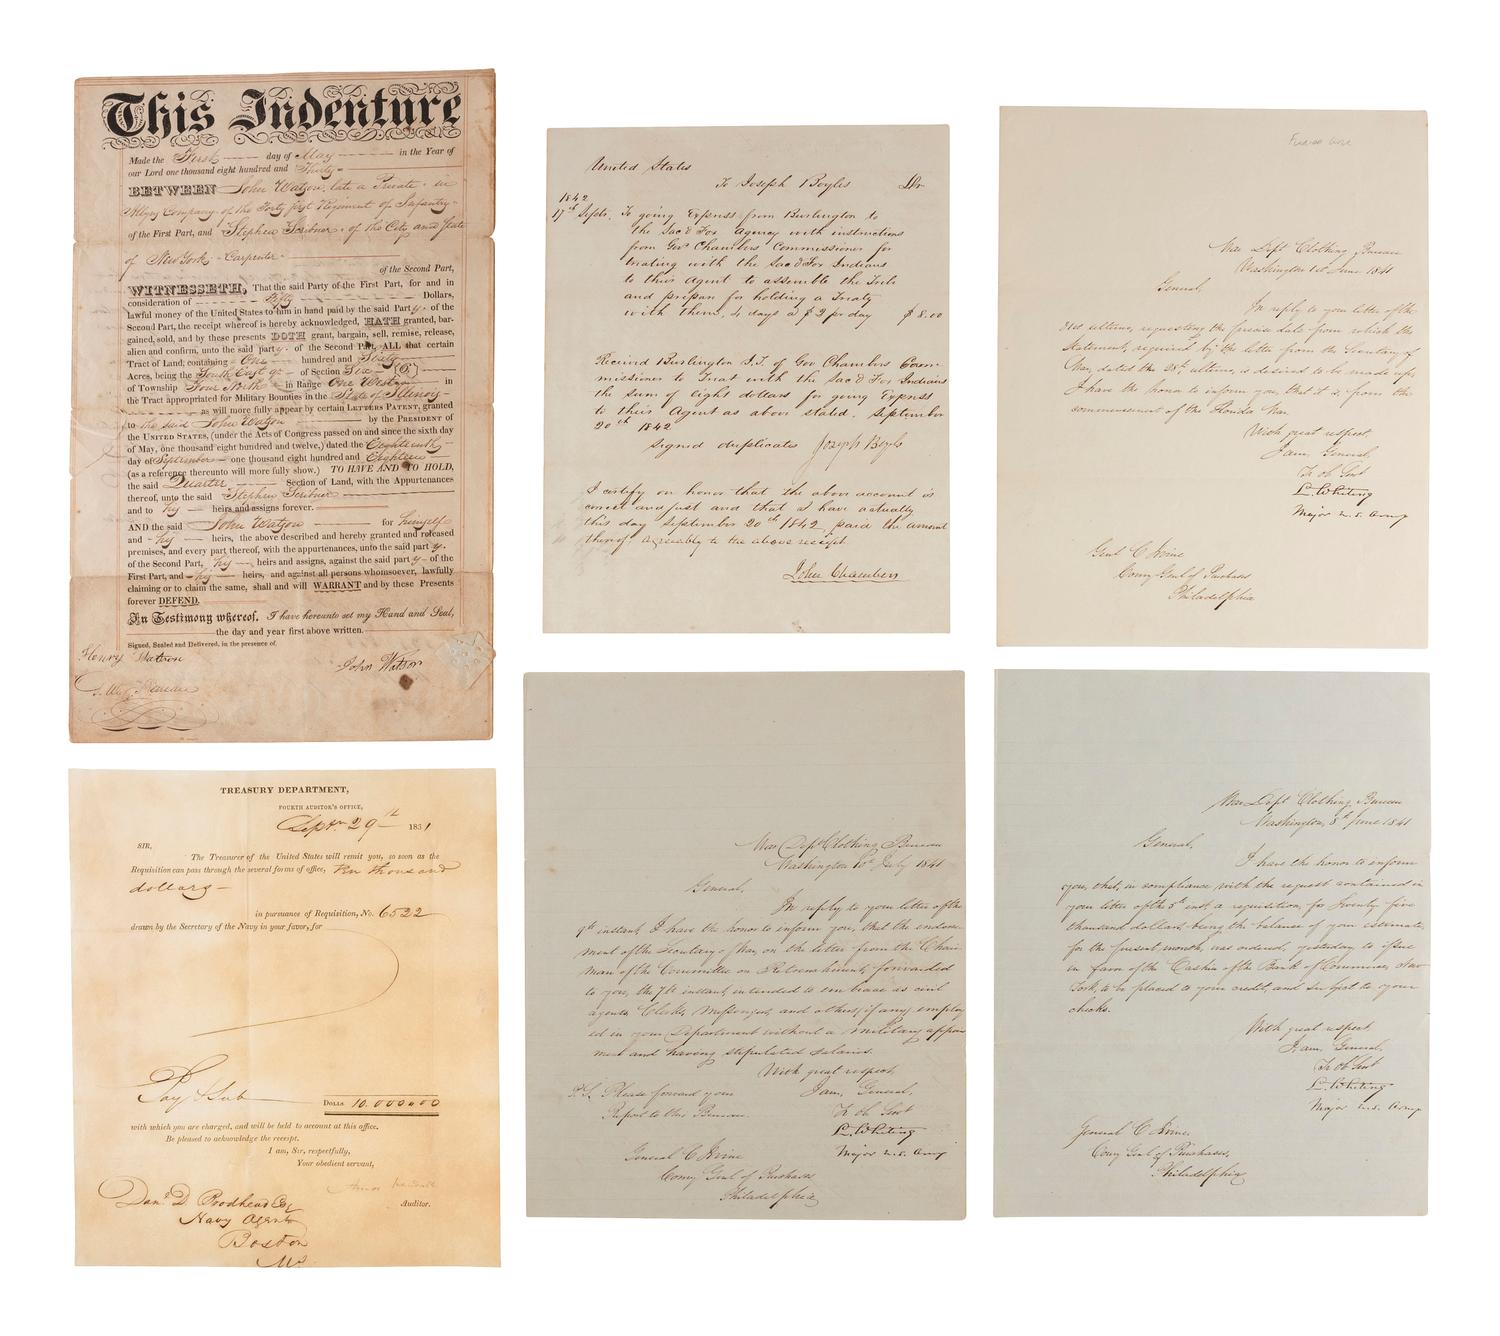 This Indenture
Made the First day of May in the Year of
our Lord one thousand eight hundred and Thirty
BETWEEN John Watson, late a Private in
Company of the Forty first Regiment of Infantry
of the First Part, and Stephen Scribner of the City and State
of New York Carpenter
of the Second Part,
WITNESSETH, That the said Party of the First Part, for and in
consideration of Fifty Dollars,
lawful money of the United States to him in hand paid by the said Party of the
Second Part, the receipt whereof is hereby acknowledged, HATH granted, bar-
gained, sold, and by these presents DOTH grant, bargain, sell, remise, release,
alien and confirm, unto the said party of the Second Part, ALL that certain
Tract of Land, containing One hundred and Sixty
Acres, being the South East qr of Section Six (6)
of Township Four North in Range One West in
the Tract appropriated for Military Bounties in the State of Illinois
as will more fully appear by certain LETTERS PATENT, granted
to the said John Watson by the PRESIDENT of
the UNITED STATES, (under the Acts of Congress passed on and since the sixth day
of May, one thousand eight hundred and twelve,) dated the Eighteenth
day of September one thousand eight hundred and Eighteen
(as a reference thereunto will more fully show.) TO HAVE AND TO HOLD,
the said Quarter Section of Land, with the Appurtenances
thereof, unto the said Stephen Scribner
and to his heirs and assigns forever.
AND the said John Watson for himself
and his heirs, the above described and hereby granted and released
premises, and every part thereof, with the appurtenances, unto the said party
of the Second Part, his heirs and assigns, against the said party of the
First Part, and his heirs, and against all persons whomsoever, lawfully
claiming or to claim the same, shall and will WARRANT and by these Presents
forever DEFEND.
In Testimony whereof, I have hereunto set my Hand and Seal,
the day and year first above written.
Signed, Sealed and Delivered, in the presence of
Henry Watson
John Watson
TREASURY DEPARTMENT,
FOURTH AUDITOR'S OFFICE,
Septr 29th 1831
SIR,
The Treasurer of the United States will remit you, so soon as the
Requisition can pass through the several forms of office, Ten thousand
dollars
in pursuance of Requisition, No. 6522
drawn by the Secretary of the Navy in your favor, for
Pay & Sub
DOLLS. 10.000 00
with which you are charged, and will be held to account at this office.
Be pleased to acknowledge the receipt.
I am, Sir, respectfully,
Your obedient servant,
Amos Kendall
Auditor.
Danl D. Brodhead Esq
Navy Agent
Boston
Ms
United States
To Joseph Boyles Dr
1842
17th Septr. To going Express from Burlington to
the Sac & Fox Agency with instructions
from Gov Chambers Commissioner for
treating with the Sac & Fox Indians
to their Agent to assemble the Tribe
and prepare for holding a Treaty
with them, 4 days a $2 pr day $8.00
Received Burlington I.T. of Gov Chambers Com-
missioner to Treat with the Sac & Fox Indians
the sum of eight dollars for going Express
to their Agent as above stated. September
20th 1842
signed duplicates Joseph Boyles
I certify on honor that the above account is
correct and just and that I have actually
this day September 20th 1842 paid the amount
thereof agreeably to the above receipt.
John Chambers
War Dept Clothing Bureau
Washington 1st June 1841
General,
In reply to your letter of the
31st ultimo, requesting the precise date from which the
Statement, required by the letter from the Secretary of
War, dated the 28th ultimo, is desired to be made up,
I have the honor to inform you, that it is, from the
commencement of the Florida War.
With great respect,
I am, General,
Yr ob Servt
L. Whiting
Major U.S. Army
Genl C Irvine
Comy Genl of Purchases
Philadelphia
War Dept Clothing Bureau
Washington 10th July 1841
General,
In reply to your letter of the
9th instant, I have the honor to inform you, that the endorse-
ment of the Secretary of War, on the letter from the Chair-
man of the Committee on Retrenchment, forwarded
to you, the 7th instant, intended to embrace as civil
agents, Clerks, Messengers, and others, if any, employ
ed in your Department without a military appoint
ment and having stipulated salaries.
With great respect,
P.S. Please forward your I am, General,
Report to this Bureau. Yr ob Servt
L. Whiting
Major U.S. Army
General C Irvine
Comy Genl of Purchases
Philadelphia
War Dept Clothing Bureau
Washington, 8th June 1841
General,
I have the honor to inform
you, that, in compliance with the request contained in
your letter of the 5th inst, a requisition, for Seventy five
thousand dollars, being the balance of your estimate,
for the present month, was ordered, yesterday to issue
in favor of the Cashier of the Bank of Commerce, New
York, to be placed to your credit, and subject to your
checks.
With great respect,
I am, General,
Yr ob Servt
L. Whiting
Major U.S. Army
General C Irvine,
Comy Genl of Purchases,
Philadelphia